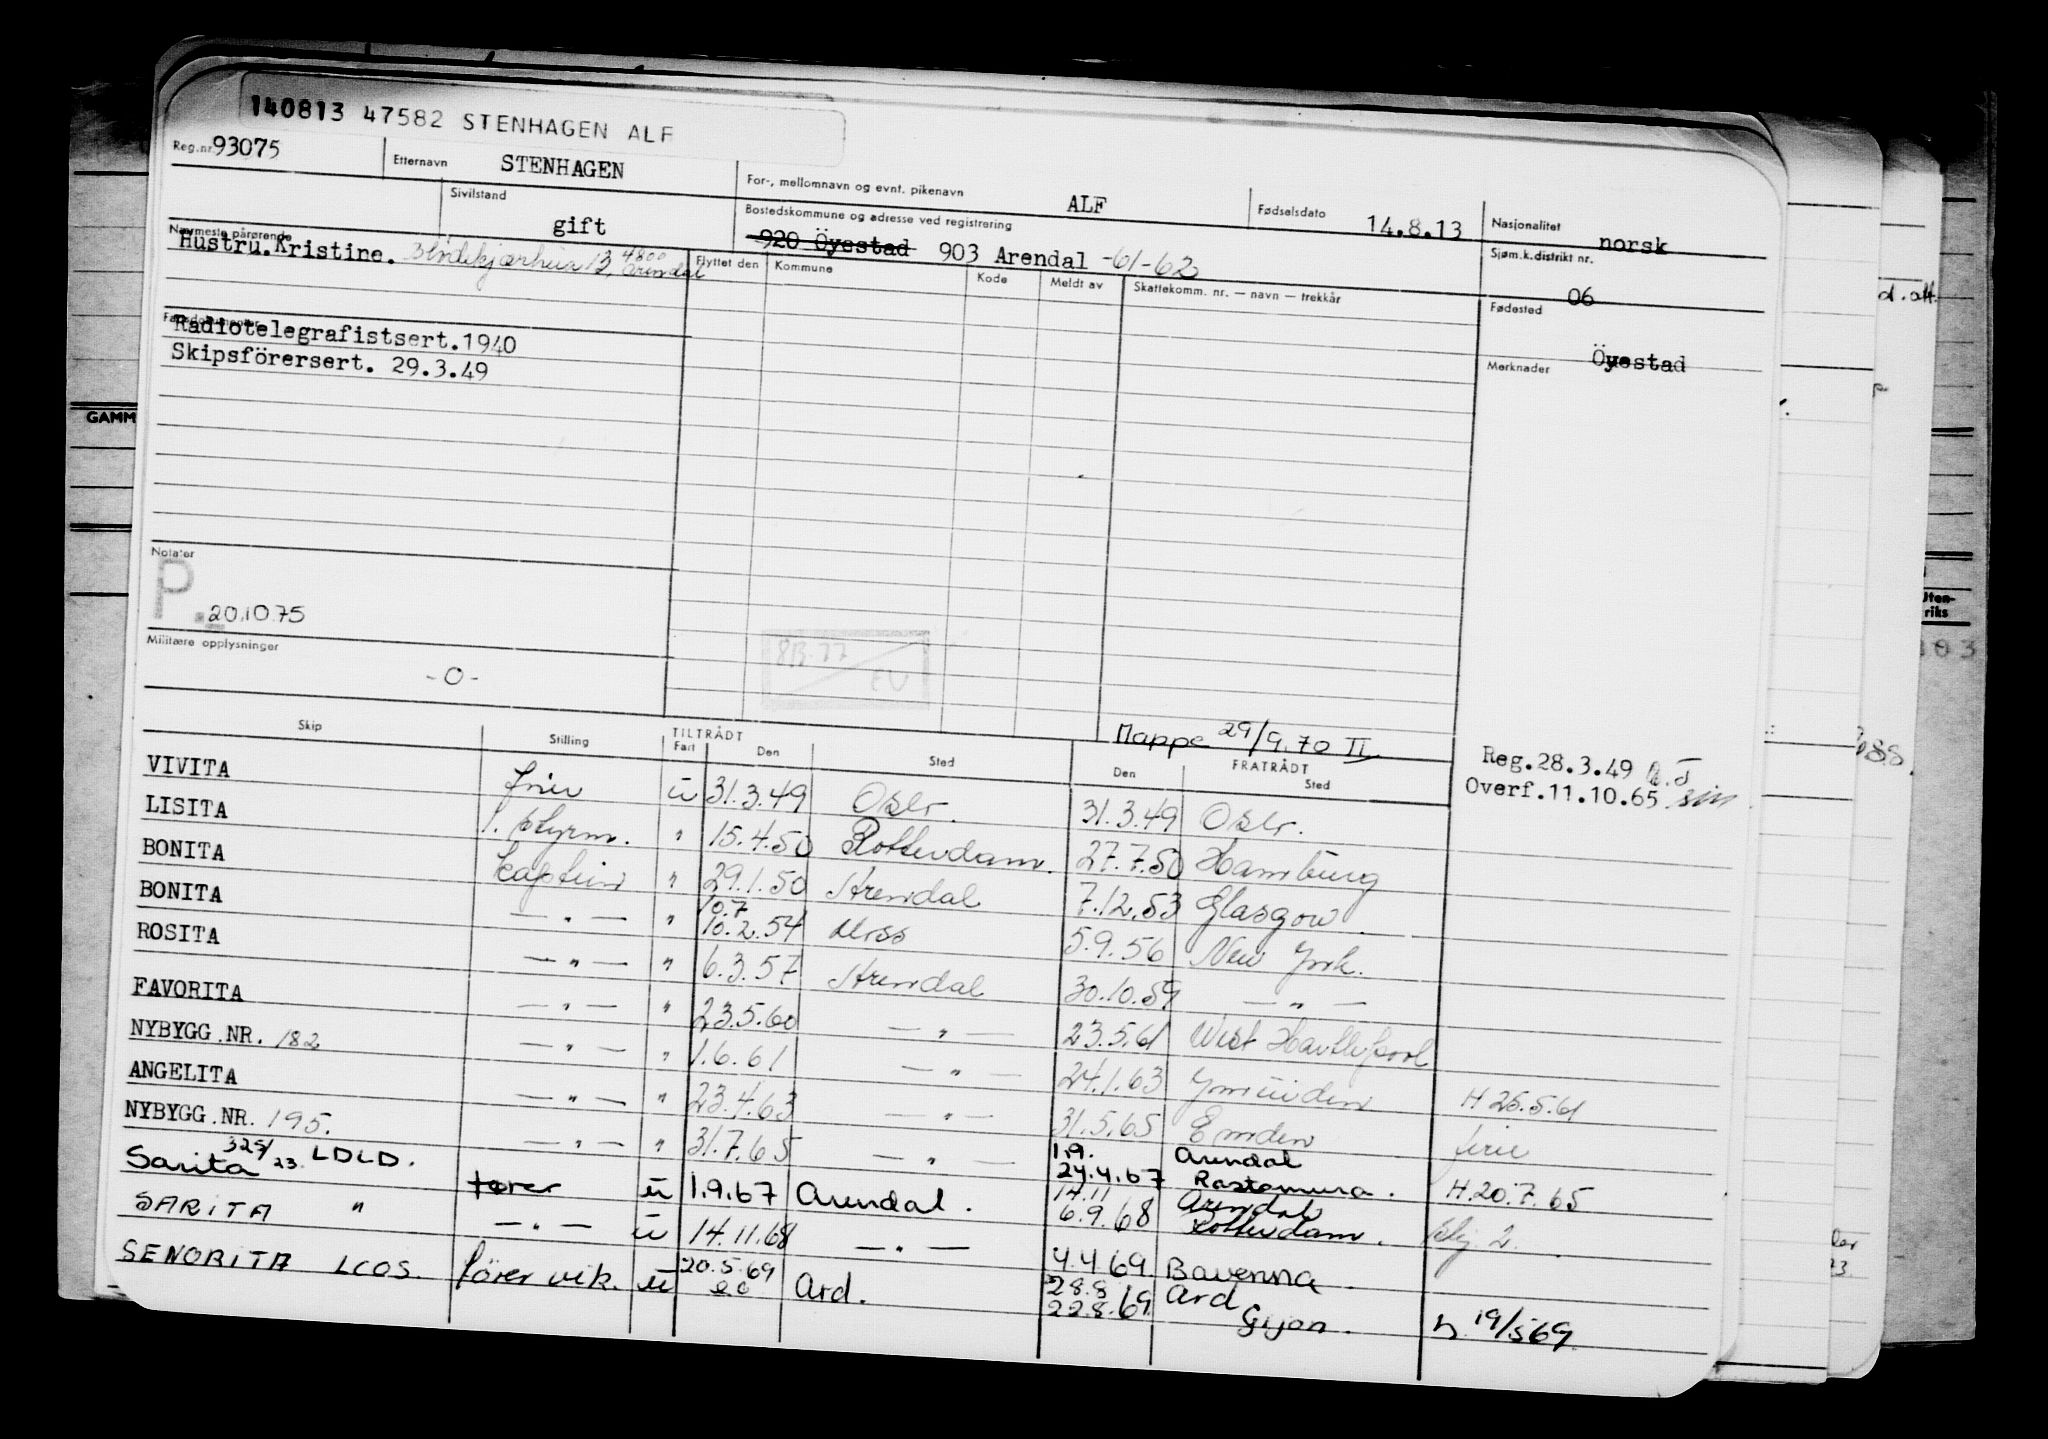 140813 47582 STENHAGEN ALF
Reg.nr. 93075
Etternavn STENHAGEN
For-, mellomnavn og evnt. pikenavn ALF
Fødselsdato 14.8.13
Nasjonalitet norsk
Sivilstand gift
Bostedskommune og adresse ved registrering
920 Öyestad 903 Arendal -61-62
Sjøm.k.distrikt nr. 06
Nærmeste pårørende
Hustru.Kristine. 4800 Arendal
Flyttet den Kommune Kode Meldt av Skattekomm. nr. — navn — trekkår
Fødested Öyestad
Radiotelegrafistsert.1940
Skipsförersert. 29.3.49
Merknader
Notater
P. 20.10.75
Militære opplysninger
-0-
Mappe 29/9.70 II
Reg.28.3.49
Overf.11.10.65
Skip Stilling TILTRÅDT Fart Den Sted FRATRÅDT Den Sted
VIVITA ü 31.3.49 Oslo 31.3.49 Oslo.
LISITA 1. styrm. " 15.4.50 Rotterdam. 27.7.50 Hamburg
BONITA kaptein " 29.1.50 Arendal 7.12.53 Glasgow.
BONITA — " — " 10.7 10.2.54 Moss 5.9.56 New York.
ROSITA — " — " 6.3.57 Arendal 30.10.59 — " —
FAVORITA — " — " 23.5.60 — " — 23.5.61 West Hartlepool
NYBYGG.NR. 182 — " — " 1.6.61 — " — 24.1.63 Ymuiden H 25.5.61
ANGELITA — " — " 23.4.63 — " — 31.5.65 Emden ferie
NYBYGG.NR. 195. — " — " 31.7.65 — " — 1.9. 24.4.67 Arendal Rastamura. H.20.7.65
Sarita 325/23. LDLD. fører ü 1.9.67 Arendal. 14.11 6.9.68 Arendal Rotterdam.
SARITA " — " — ü 14.11.68 — " — 4.4.69. Bavenna
SENORITA LCOS. förer vik. ü 20.5.69 Ard. 28.8 22.8.69 Ard Gijon. h. 19/5 69.
GAMM
Uten-
riks
103